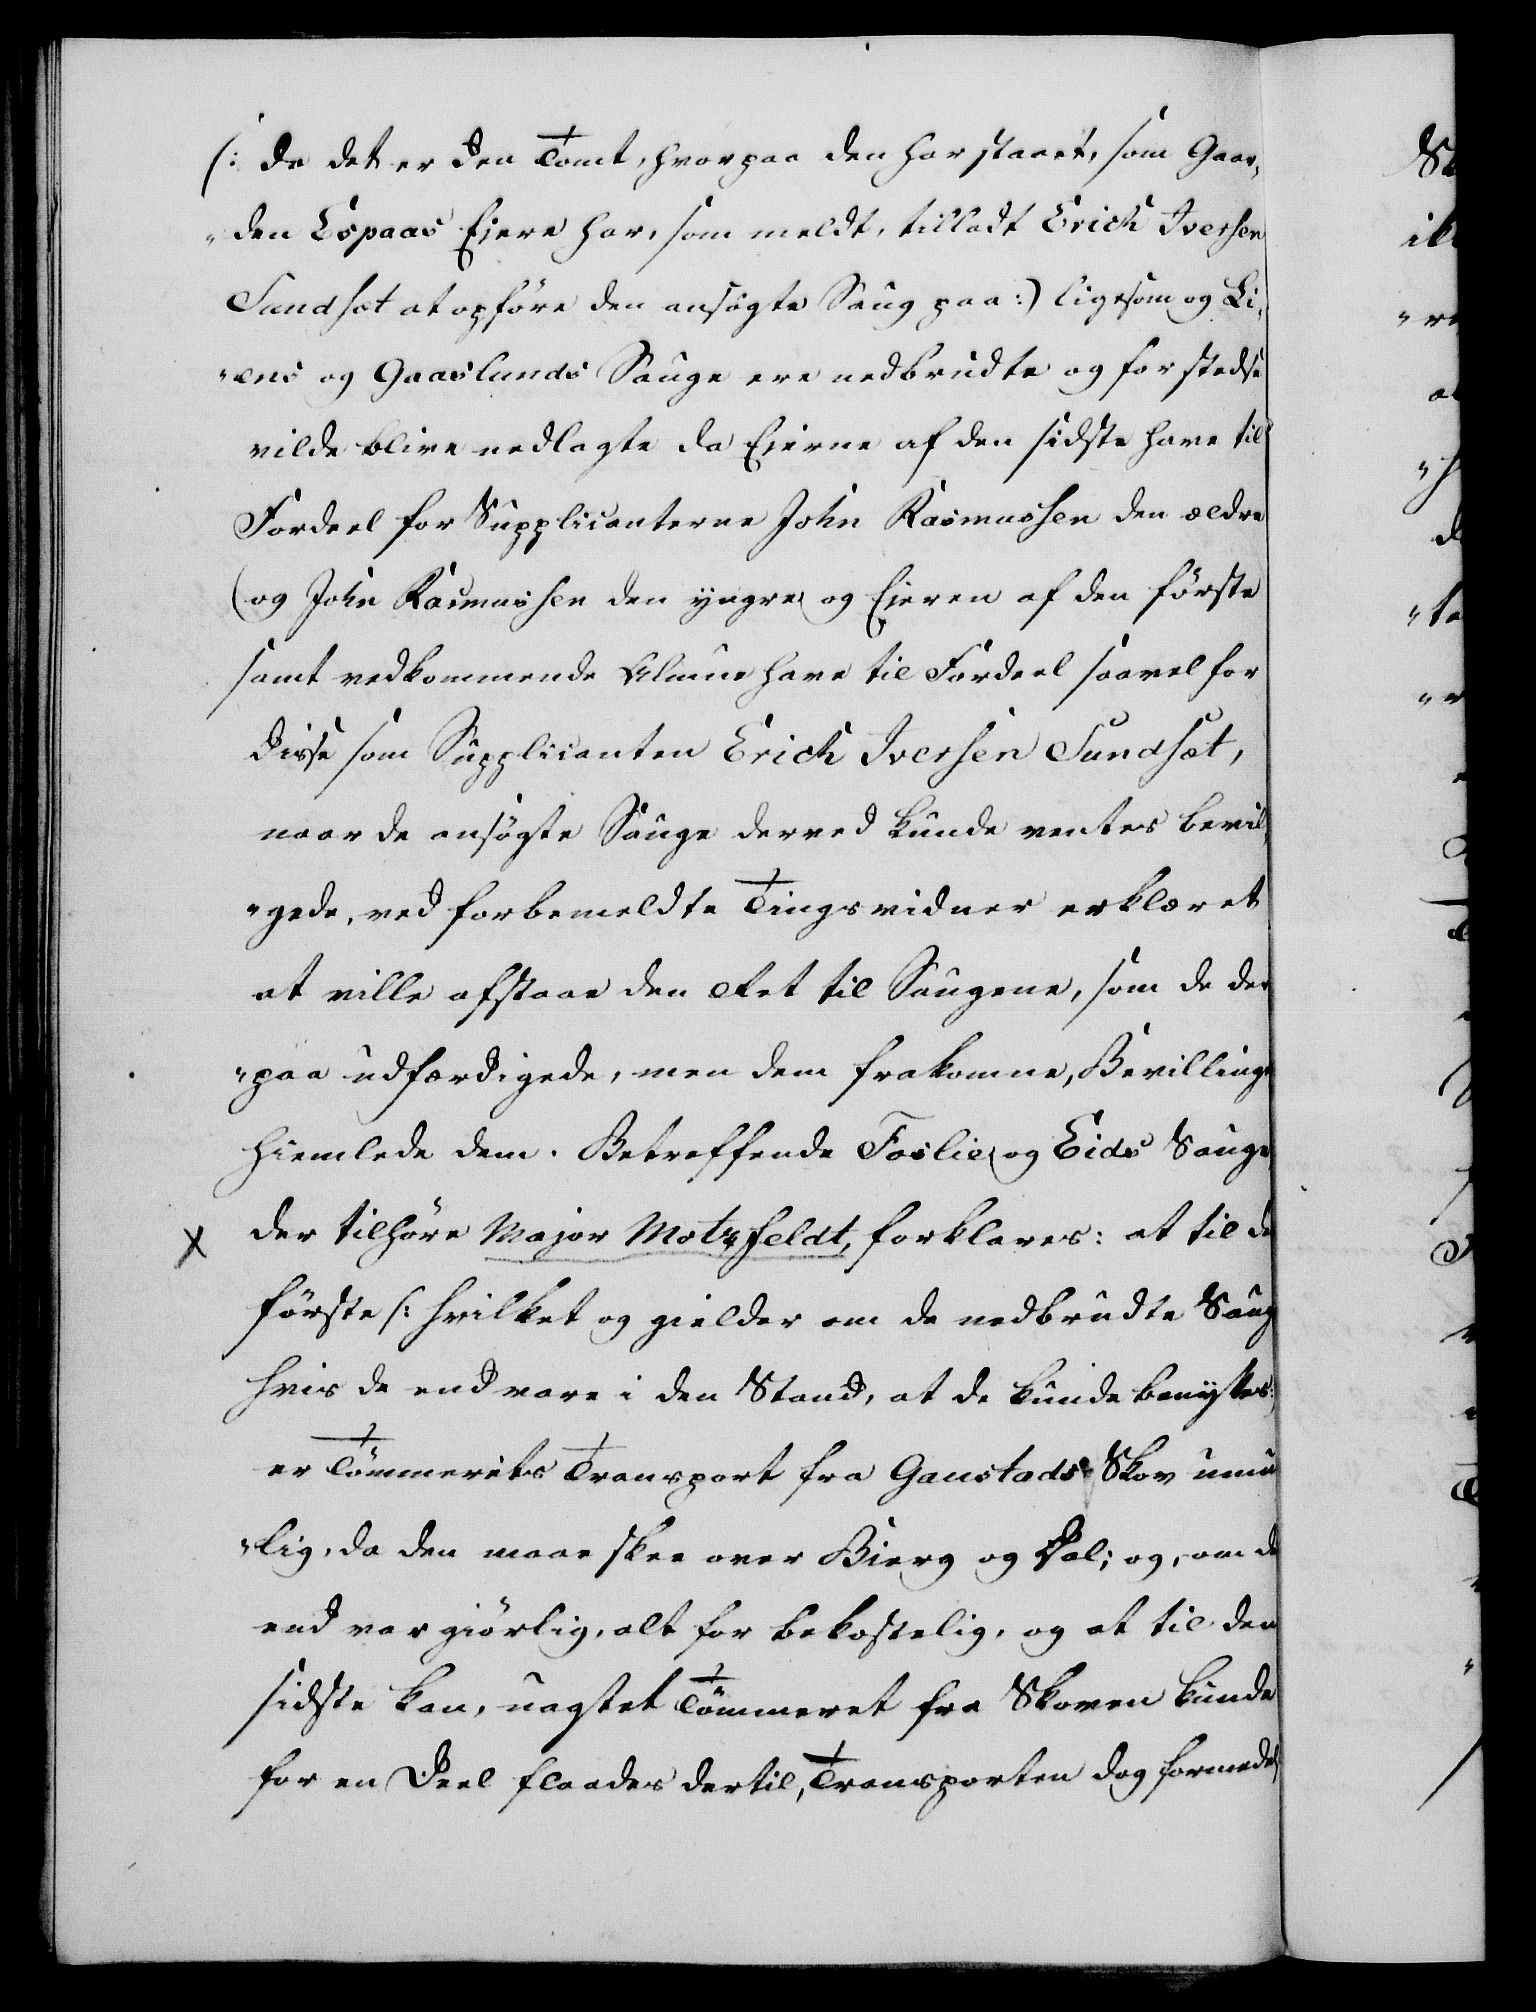 /: da det er den Tomt, hvorpaa den har staaet, som Gaar,
„den Espaas Eiere har, som meldt, tilladt Erich Iversen
Sundset at opföre den ansögte Saug paa :) ligesom og Li,
„ens og Gaaslunds Sauge ere nedbrudte og for stedse
vilde blive nedlagte da Eierne af den sidste have til
Fordeel for Supplicanterne John Rasmussen den ældre
og John Rasmussen den yngre og Eieren af den förste
samt vedkommende Almue have til Fordeel saavel for
disse som Supplicanten Erich Iversen Sundset,
naar de ansögte Sauge derved kunde ventes bevil,
„gede, ved forbemeldte Tingsvidner erklæret
at ville afstaae den Ret til Saugene, som de der
„paa udfærdigede, men dem frakomne, Bevillinge
hiemlede dem. Betreffende Foslie og Eids Sauge
x der tilhöre Major Motzfeldt, forklares: at til de
förste /: hvilket og gielder om de nedbrudte Saug
hvis de end vare i den Stand, at de kunde benyttes:
er Tömmerets Transport fra Gaustads Skov umu
„lig, da den maae skee over Bierg og Dal; og, om de
end var giörlig, alt for bekostelig, og at til den
sidste kan, uagtet Tömmeret fra Skoven kunde
for en Deel flaades dertil, Transporten dog formedel